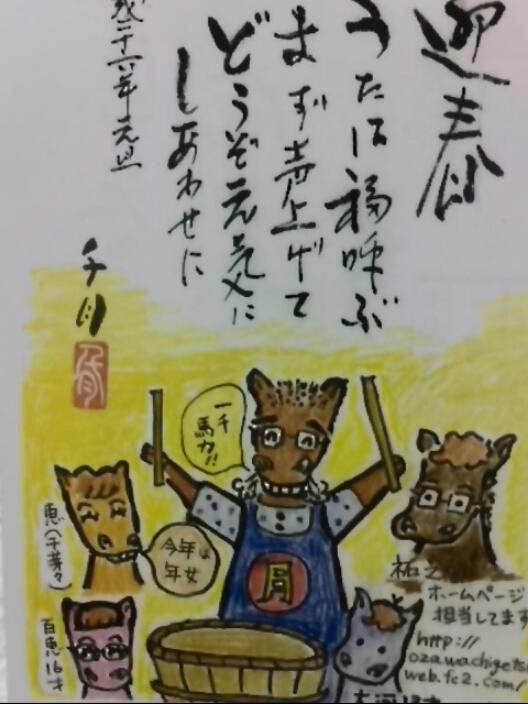 迎春
うたは福呼ぶ
まず声上げて
どうぞ元気に
しあわせに
成二十六年元旦
千月
一千
馬力!!
今年は
年女
月
恵(千芽々)
百恵16才
祐之
ホームページ
担当してます
http://
ozawachigets
web.fc2.com/